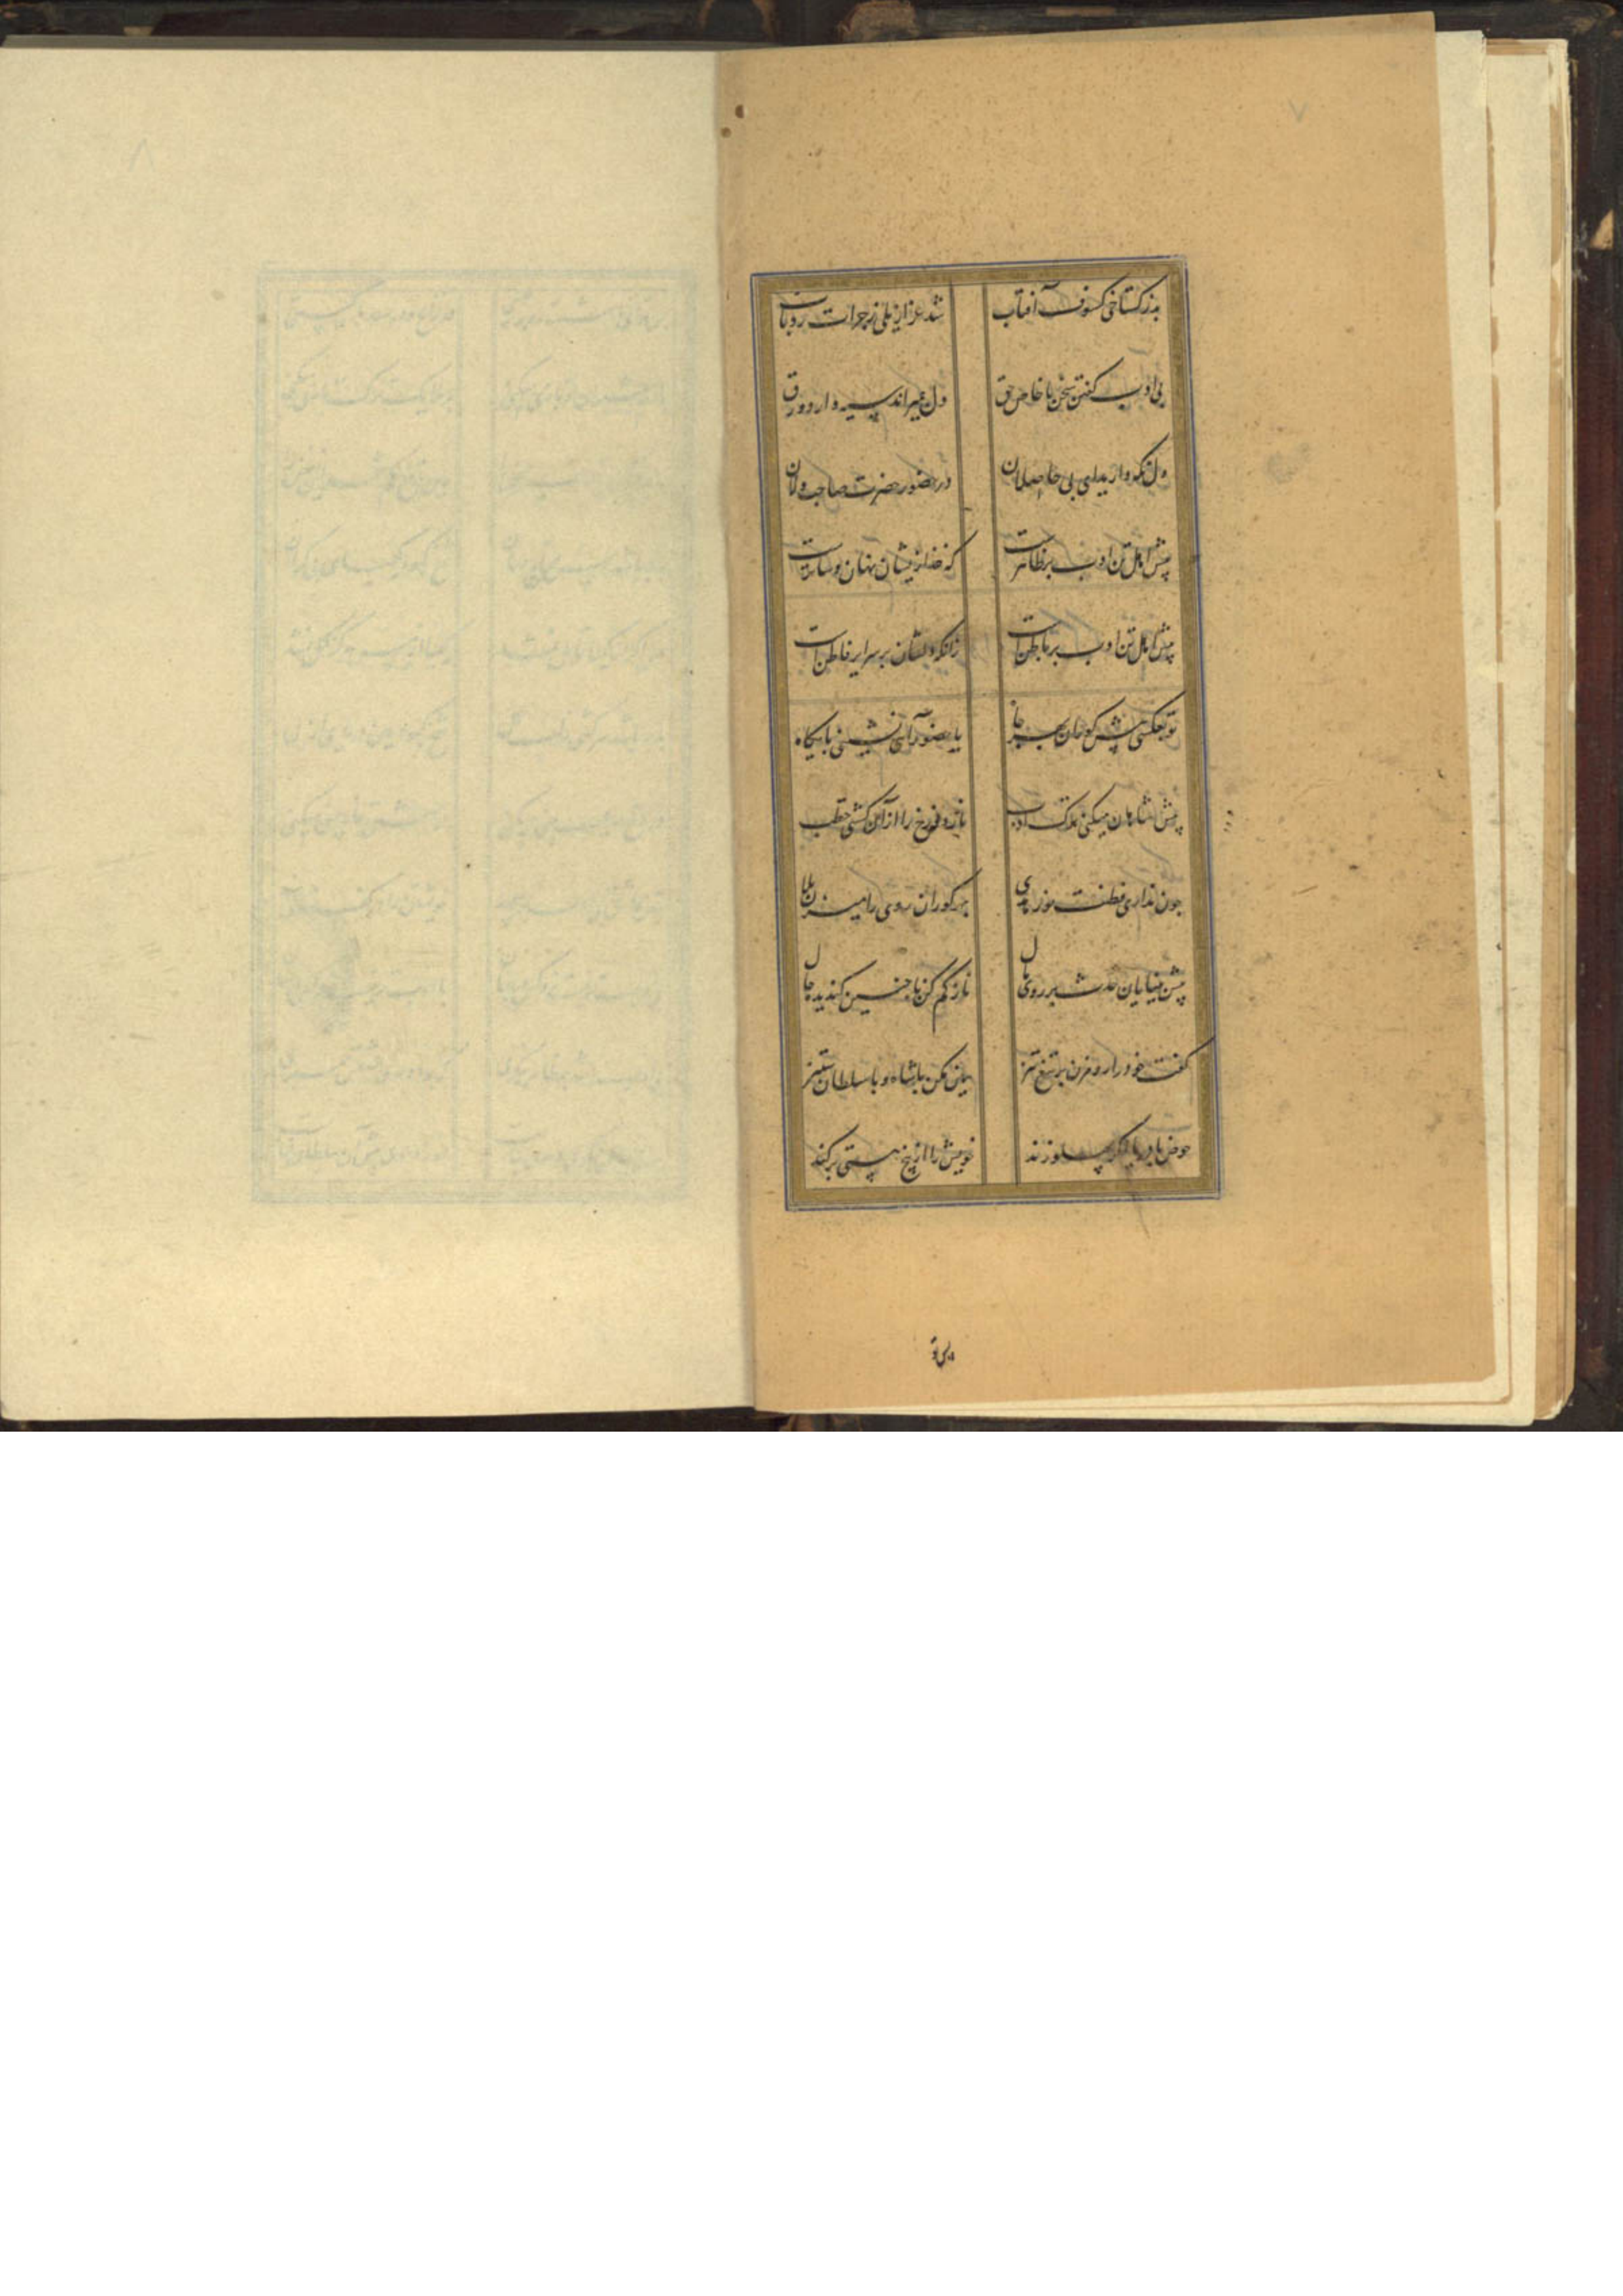 بد ز گستاخی کسوف آفتاب
شد عزازیلی ز جرات رد باب
بی ادب گفتن سخن با خاص حق
دل بمیراند سیه دارد ورق
دل نگه دارید ای بی حاصلان
در حضور حضرت صاحب دلان
پیش اهل تن ادب بر ظاهرست
که خدا زیشان نهان را ساترست
پیش اهل تن ادب بر باطن است
زانکه دلشان بر سرایر فاطن است
تو بعکسی پیش کوران بهر جاه
با حضور آیی نشینی پایگاه
پیش بینایان کنی ترک ادب
نار دوزخ را از آن گشتی حطب
چون نداری فطنت و نور هدی
بهر کوران روی را میزن جلا
پیش بینایان حدث بر روی مال
ناز کم کن با چنین گندیده حال
گفت خود را رو مزن بر تیغ تیز
هان مکن با شاه و با سلطان ستیز
حوض با دریا اگر پهلو زند
خویش را از بیخ هستی برکند